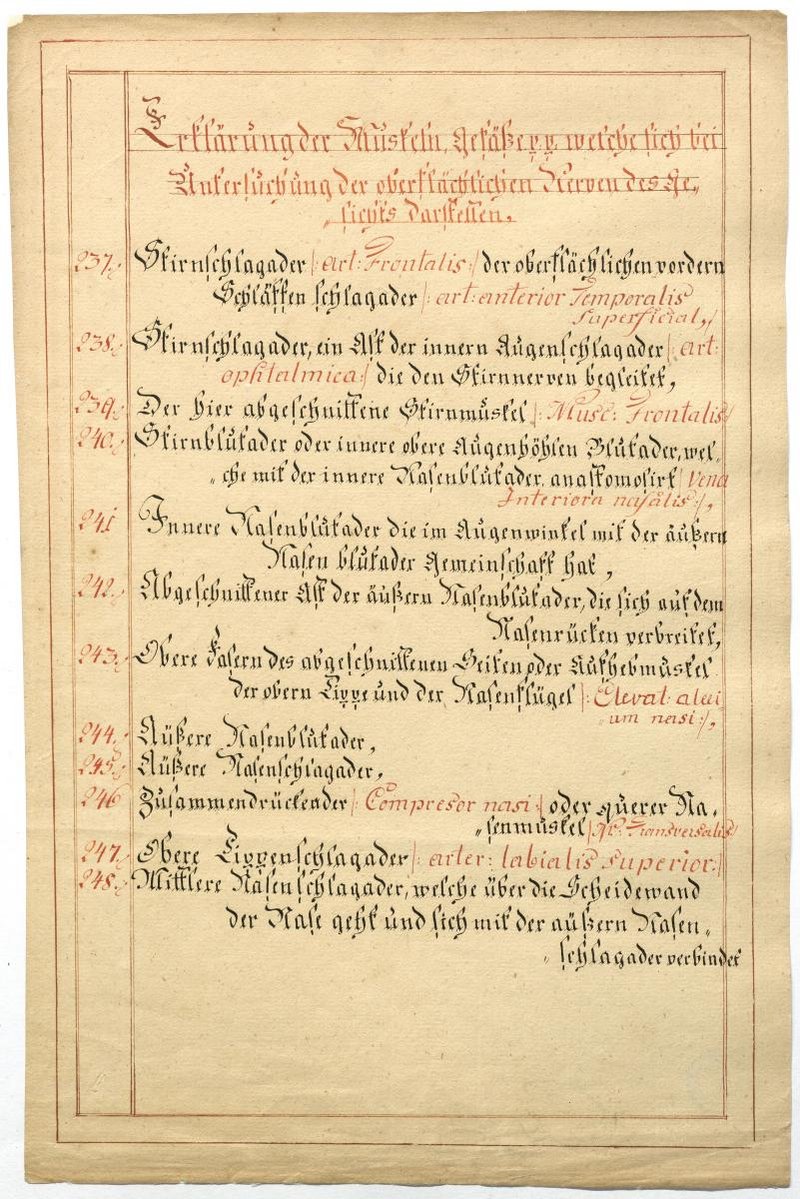 Erklärung der Muskeln, Gefäße pp welche sich bei
Untersuchung der oberflächlichen Nerven des Ge„
„sichts darstellen.
237. Stirnschlagader /: art: Frontalis :/ der oberflächlichen vordern
Schläffen schlagader /: art: anterior Temporalis
superficial,/
238. Stirnschlagader, ein Ast der innern Augenschlagader /: art:
ophtalmica :/ die den Stirnnerven begleitet,
239. Der hier abgeschnittene Stirnmuskel /: Musc: Frontalis /
240. Stirnblutader oder innere obere Augenhöhlen Blutader, wel„
„che mit der innere Nasenblutader, anastomosirt / Vena
Interiora nasalis :/,
241 Innere Nasenblutader die im Augenwinkel mit der äußern
Nasen blutader Gemeinschaft hat,
242. Abgeschnittener Ast der äußern Nasenblutader, die sich auf dem
Nasenrücken verbreitet,
243. Obere Fasern des abgeschnittenen Seiten oder Aufhebmuskel
der obern Lippe und der Nasenflügel /: Elevat: alai
„um nasi :/,
244. Äußere Nasenblutader,
245. Äußere Nasenschlagader,
246 Zusammendrückender /: Compresor nasi :/ oder querer Na„
„senmuskel / Transversalis /
247. Obere Lippenschlagader /: arter: labialis superior :/
248. Mittlere Nasenschlagader, welche über die Scheidewand
der Nase geht und sich mit der äußern Nasen„
„schlagader verbindet